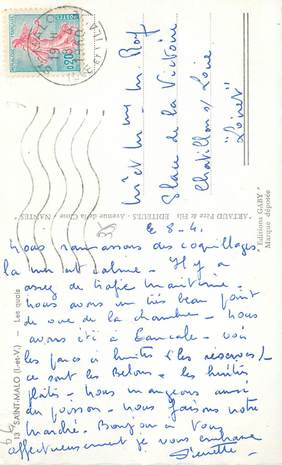 REPUBLIQUE FRANÇAISE
0,20
POSTES
Mr et Mme Roy
Place de la Victoire
Chatillon s/ Loire
"Loiret"
"Editions GABY"
Marque déposée
ARTAUD Père & Fils EDITEURS - Avenue de la Close NANTES
13 SAINT-MALO (I.-et-V.) — Les quais
le 8-4.
Nous ramassons des coquillages
la mer est calme - Il y a
assez de trafic maritime -
nous avons un très beau point
de vue de la chambre - nous
avons été à Cancale - voir
les parcs à huitres (les réserves)
ce sont les Belons - les huitres
plates - nous mangeons aussi
du poisson - nous faisons notre
marché. Bonjour à vous
affectueusement je vous embrasse